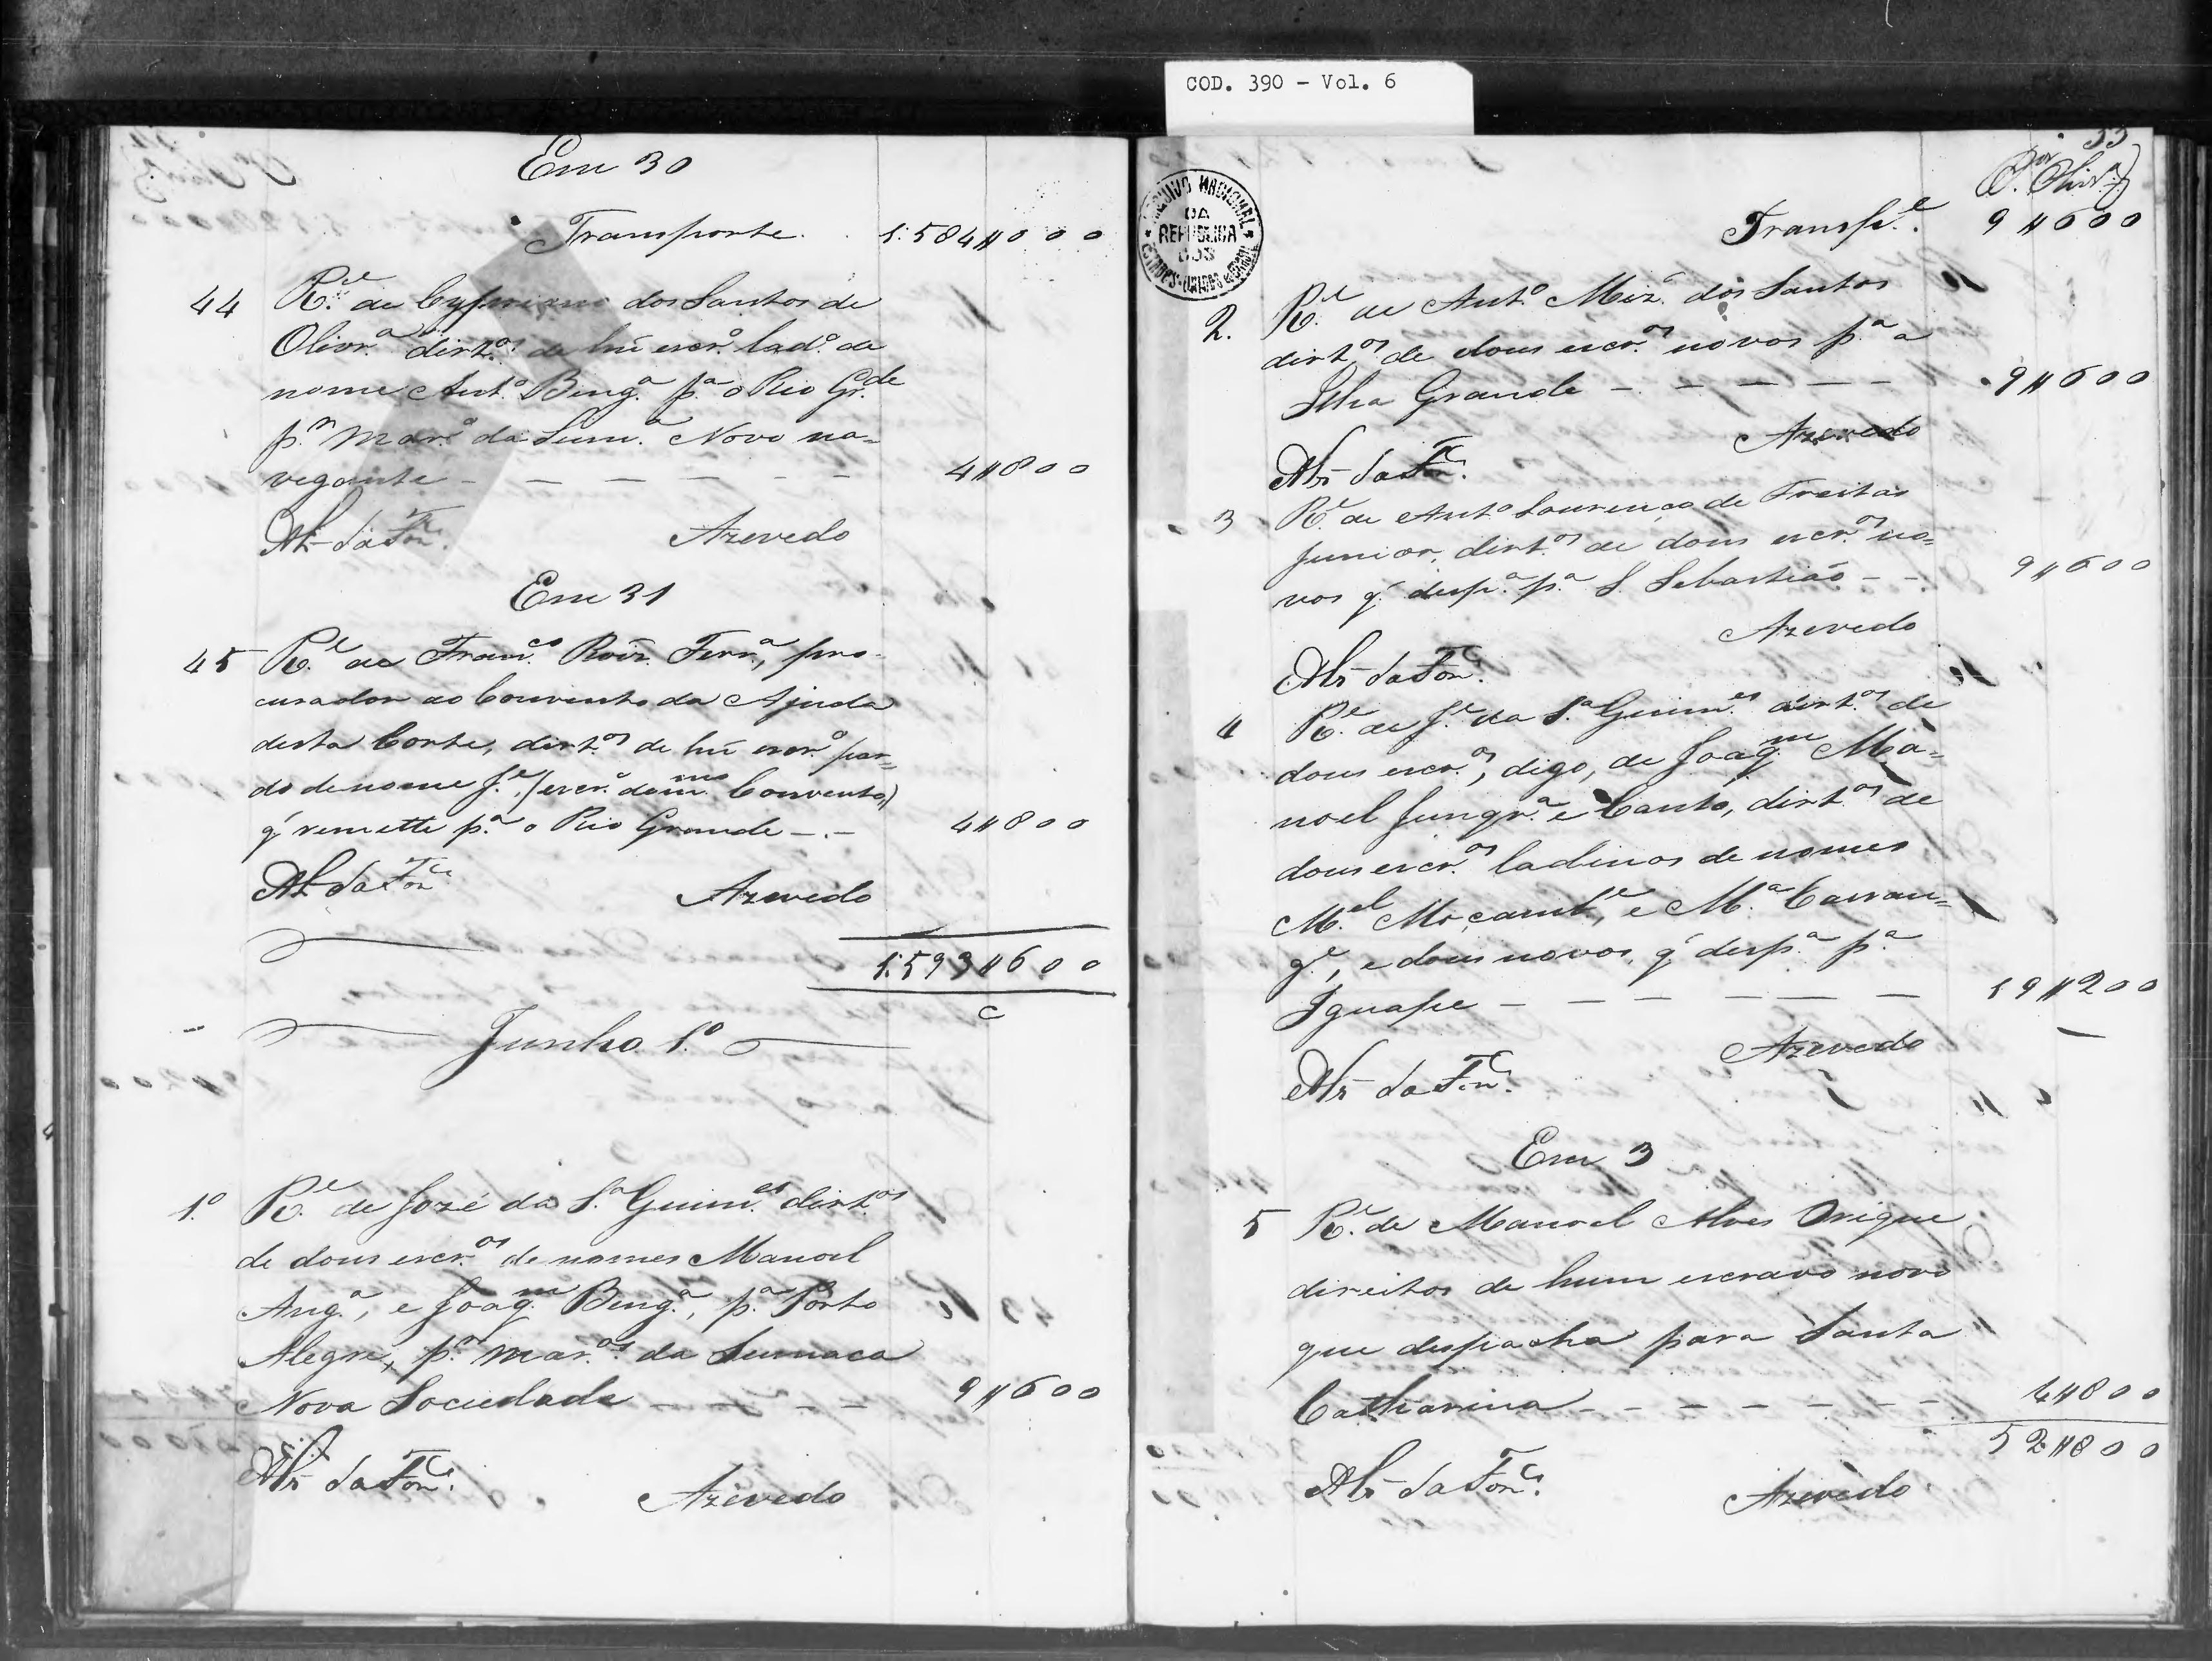 COD. 390 - Vol. 6
Em 30
Transporte. 1:584#000
44 R.e de Cypriano dos Santos de
Olivr.a dirt.os de hũ escr.o lad.o de
nome Ant.o Beng.a p.a o Rio Gr.de
p.r mar.o da Sum.a Novo na=
vegante - - - - - - 4#800
Alz da Fon.ca Azevedo
Em 31
45 R.e de Fran.co Roiz Ferr.a, pro-
curador do Convento da Ajuda
desta Corte, dirt.os de hũ escr.o par=
do de nome J.e, (escr.o do m.mo Convento,)
q' remette p.a o Rio Grande - . - 4#800
Alz da Fon.ca Azevedo
1:593#600
Junho 1.o
1.o R.e de Jozé da S.a Guim.es dirt.os
de dous escr.os de nomes Manoel
Ang.a, e Joaq.m Beng.a, p.a Porto
Alegre, p.r mar.os da Sumaca
Nova Sociedade - - - - 9#600
Alz da Fon.ca
Azevedo
33
P.or Olivr.a
ARQUIVO NACIONAL
DA
REPUBLICA
DOS
ESTADOS-UNIDOS DO BRASIL
Transp.e 9#600
2. R.e de Ant.o Miz' dos Santos
dirt.os de dous escr.os novos p.a a
Ilha Grande - - - - - - 9#600
Azevedo
Alz da Fon.ca
3 R.e de Ant.o Lourenço de Freitas
Junior, dirt.os de dous escr.os no=
vos q' desp.a p.a S. Sebastião - - 9#600
Azevedo
Alz da Fon.ca
4 R.e de J.e da S.a Guim.es dirt.os de
dous escr.os, digo, de Joaq.m Ma=
noel Jungr.a e Canto, dirt.os de
dous escr.os ladinos de nomes
M.el Moçamb.e, e M.a Cassan=
g.e, e dous novos, q' desp.a p.a
Iguape - - - - - - 19#200
Azevedo
Alz da Fon.ca
Em 3
5 R.e de Manoel Alves Orique
direitos de hum escravo novo
que despacha para Santa
Catharina - - - - - - - 4#800
52#800
Alz da Fon.ca
Azevedo